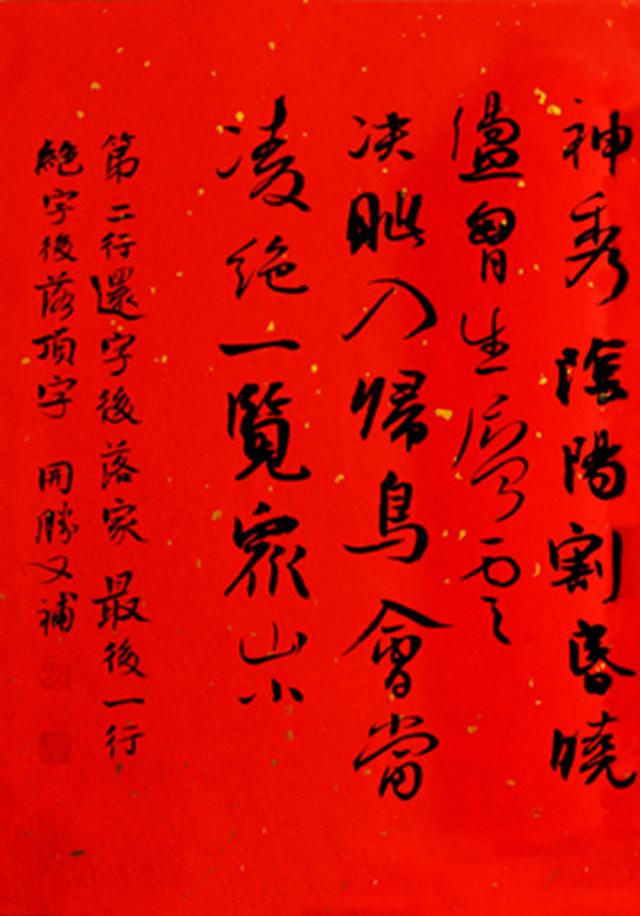 神秀陰陽割昏曉
盪胷生層雲
決眦入歸鳥會當
凌絕一覽衆山小
第二行還字後落家 最後一行
絕字後落頂字 開勝又補